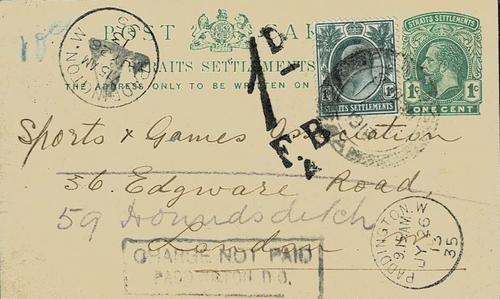 POST CARD
STRAITS SETTLEMENTS
THE ADDRESS ONLY TO BE WRITTEN ON
STRAITS SETTLEMENTS
1c 1c
ONE CENT
STRAITS SETTLEMENTS
PADDINGTON. W
1D
F.B
Sports & Games Association
36, Edgware Road,
59 Houndsditch
London
CHARGE NOT PAID
PADDINGTON D.O.
PADDINGTON. W
9.15AM
JY 26
13
35